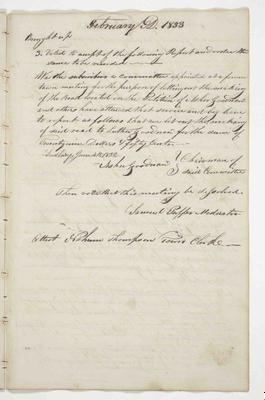 February 5D. 1833
Brought up
3. Voted to accept of the following Report and order the
same to be recorded
We the subscribers a committee appointed at a former
town meeting for the purpose of letting out the making
of the road located on the Petition of Asher Goodnow
and others have attended that service and beg leave
to report as follows that we let out the making
of said road to Luther Goodnow for the sum of
Dollars Fifty Cents
Sudbury 1832
Asher Goodnow } Chairman of
said Committee
Then voted that this meeting be dissolved.
Samuel Puffer Moderator
Attest Thompson Town Clerk